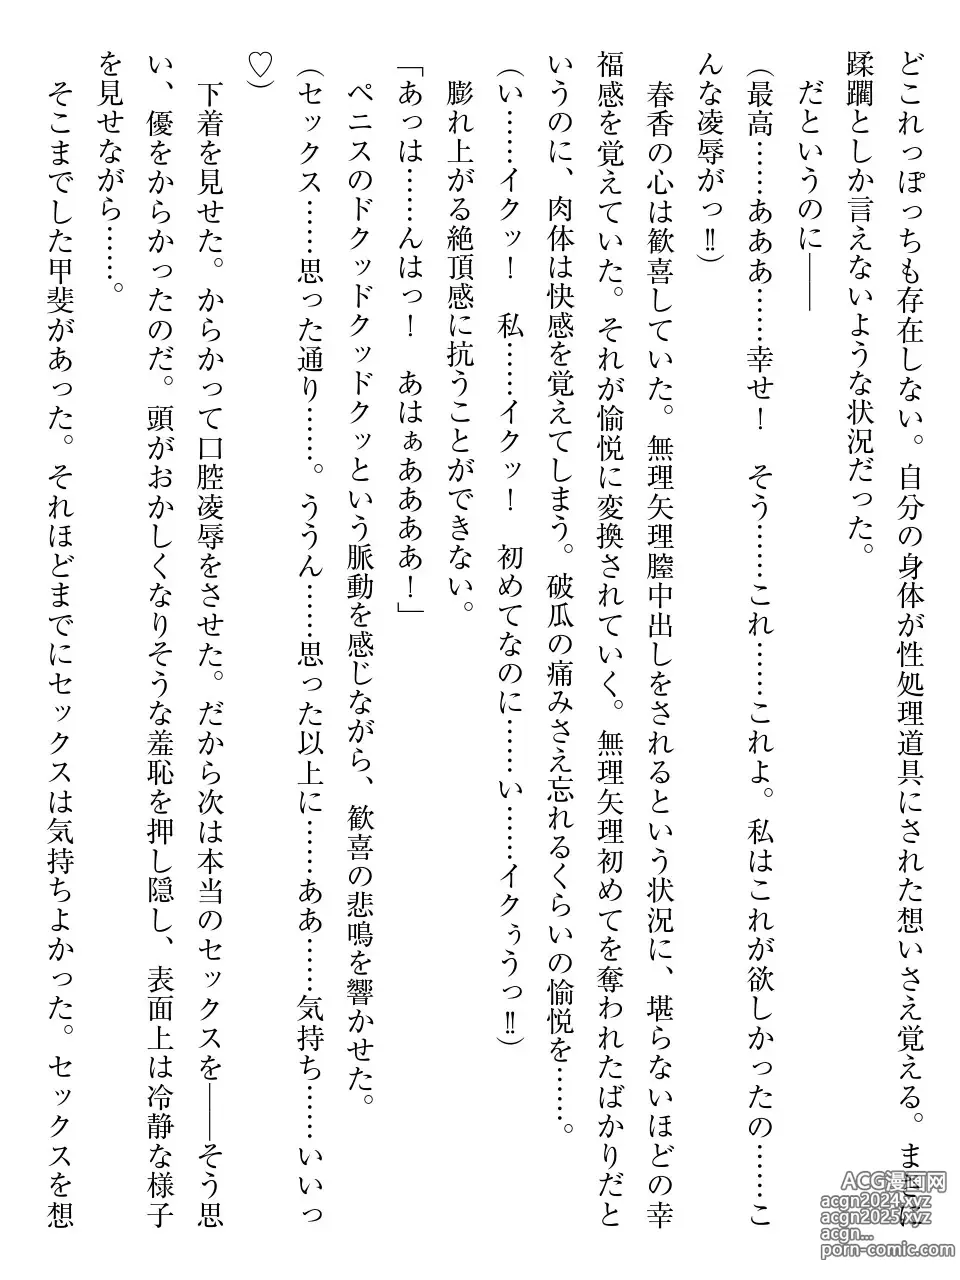 どこれっぽっちも存在しない。自分の身体が性処理道具にされた想いさえ覚える。まさに
蹂躙としか言えないような状況だった。
だというのに――
(最高……あああ……幸せ！　そう……これ……これよ。私はこれが欲しかったの……こ
んな凌辱がっ‼)
春香の心は歓喜していた。無理矢理膣中出しをされるという状況に、堪らないほどの幸
福感を覚えていた。それが愉悦に変換されていく。無理矢理初めてを奪われたばかりだと
いうのに、肉体は快感を覚えてしまう。破瓜の痛みさえ忘れるくらいの愉悦を……。
(い……イクッ！　私……イクッ！　初めてなのに……い……イクぅうっ‼)
膨れ上がる絶頂感に抗うことができない。
「あっは……んはっ！　あはぁああああ！」
ペニスのドクッドクッドクッという脈動を感じながら、歓喜の悲鳴を響かせた。
(セックス……思った通り……。ううん……思った以上に……ああ……気持ち……いいっ
♡)
下着を見せた。からかって口腔凌辱をさせた。だから次は本当のセックスを――そう思
い、優をからかったのだ。頭がおかしくなりそうな羞恥を押し隠し、表面上は冷静な様子
を見せながら……。
そこまでした甲斐があった。それほどまでにセックスは気持ちよかった。セックスを想
ACG漫画网
acgn2024.xyz
acgn2025.xyz
acgn...
porn-comic.com